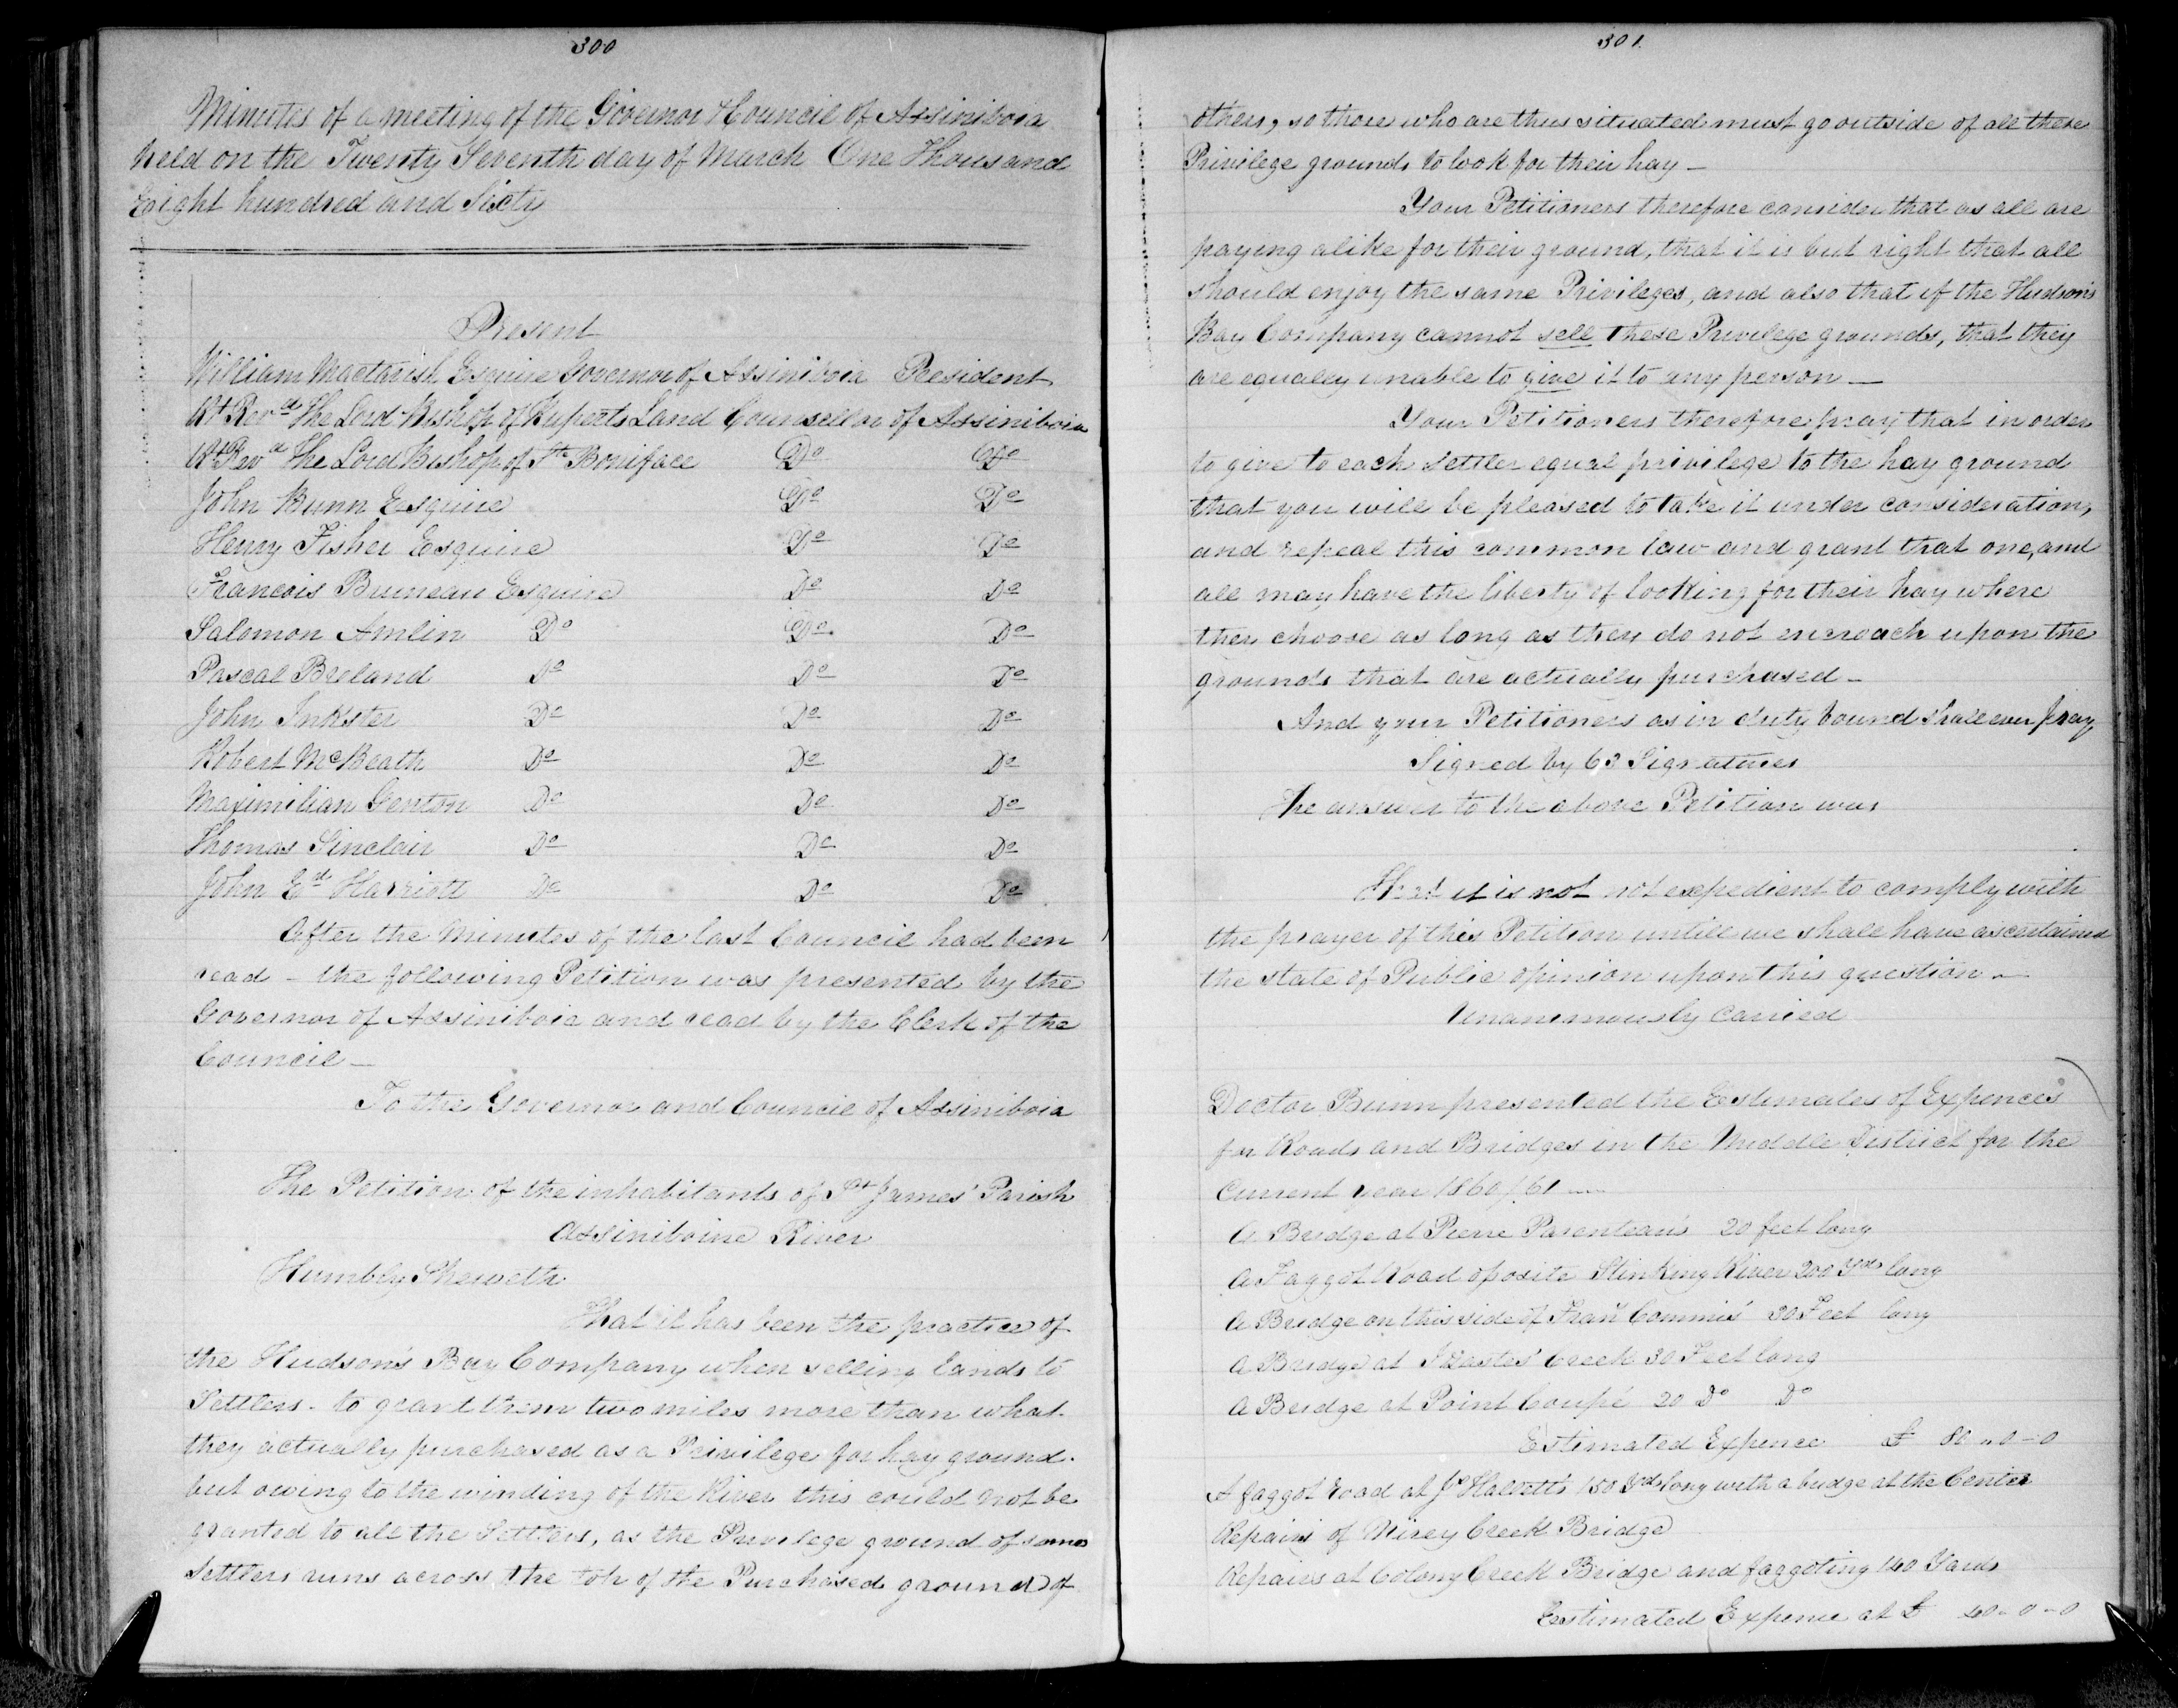 300
Minutes of a meeting of the Governor & Council of Assiniboia
held on the Twenty Seventh day of March One Thousand
Eight hundred and Sixty
Present
William Mactavish Esquire Governor of Assiniboia President
Rt Revd The Lord Bishop of Ruperts Land Counsellor of Assiniboia
Rt Revd The Lord Bishop of St Boniface Do Do
John Bunn Esquire Do Do
Henry Fisher Esquire Do Do
Francois Bruneau Esquire Do Do
Salomon Amlin Do Do Do
Pascal Breland Do Do Do
John Inkster Do Do Do
Robert McBeath Do Do Do
Maximilian Genton Do Do Do
Thomas Sinclair Do Do Do
John Ed Harriott Do Do Do
After the Minutes of the last Council had been
read - the following Petition was presented by the
Governor of Assiniboia and read by the Clerk of the
Council -
To the Governor and Council of Assiniboia
The Petition of the inhabitants of St James' Parish
Assiniboine River
Humbly Sheweth
That it has been the practice of
the Hudson's Bay Company when selling lands to
Settlers - to grant them two miles more than what
they actually purchased as a Privilege for hay ground.
but owing to the winding of the River this could not be
granted to all the Settlers, as the Privilege ground of some
Settlers runs across the top of the Purchased ground of
301.
others, so those who are thus situated must go outside of all these
Privilege grounds to look for their hay -
Your Petitioners therefore consider that as all are
paying alike for their ground, that it is but right that all
should enjoy the same Privileges, and also that if the Hudson's
Bay Company cannot sell these Privilege grounds, that they
are equally unable to give it to any person -
Your Petitioners therefore pray that in order
to give to each settler equal privilege to the hay ground
that you will be pleased to take it under consideration,
and repeal this common law and grant that one, and
all may have the liberty of looking for their hay where
they choose as long as they do not encroach upon the
grounds that are actually purchased -
And your Petitioners as in duty bound shall ever pray
Signed by 63 Signatures
The answer to the above Petition was
That it is not not expedient to comply with
the prayer of this Petition untill we shall have ascertained
the state of Public opinion upon this question -
Unanimously Carried
Doctor Bunn presented the Estimates of Expences
for Roads and Bridges in the Middle District for the
Current year 1860/61
A Bridge at Pierre Parenteau's 20 feet long
A Faggot Road oposite Stinking River 200 Yds long
A Bridge on this side of Frans Commis' 30 Feet long
A Bridge at Creek 30 Feet long
A Bridge at Point Coupé 20 Do Do
Estimated Expence £ 80 " 0 - 0
A faggot road at Js Hallett's 150 Yds long with a bridge at the Center
Repairs of Mirey Creek Bridge
Repairs at Colony Creek Bridge and faggoting 140 Yards
Estimated Expense at £ 40 - 0 - 0